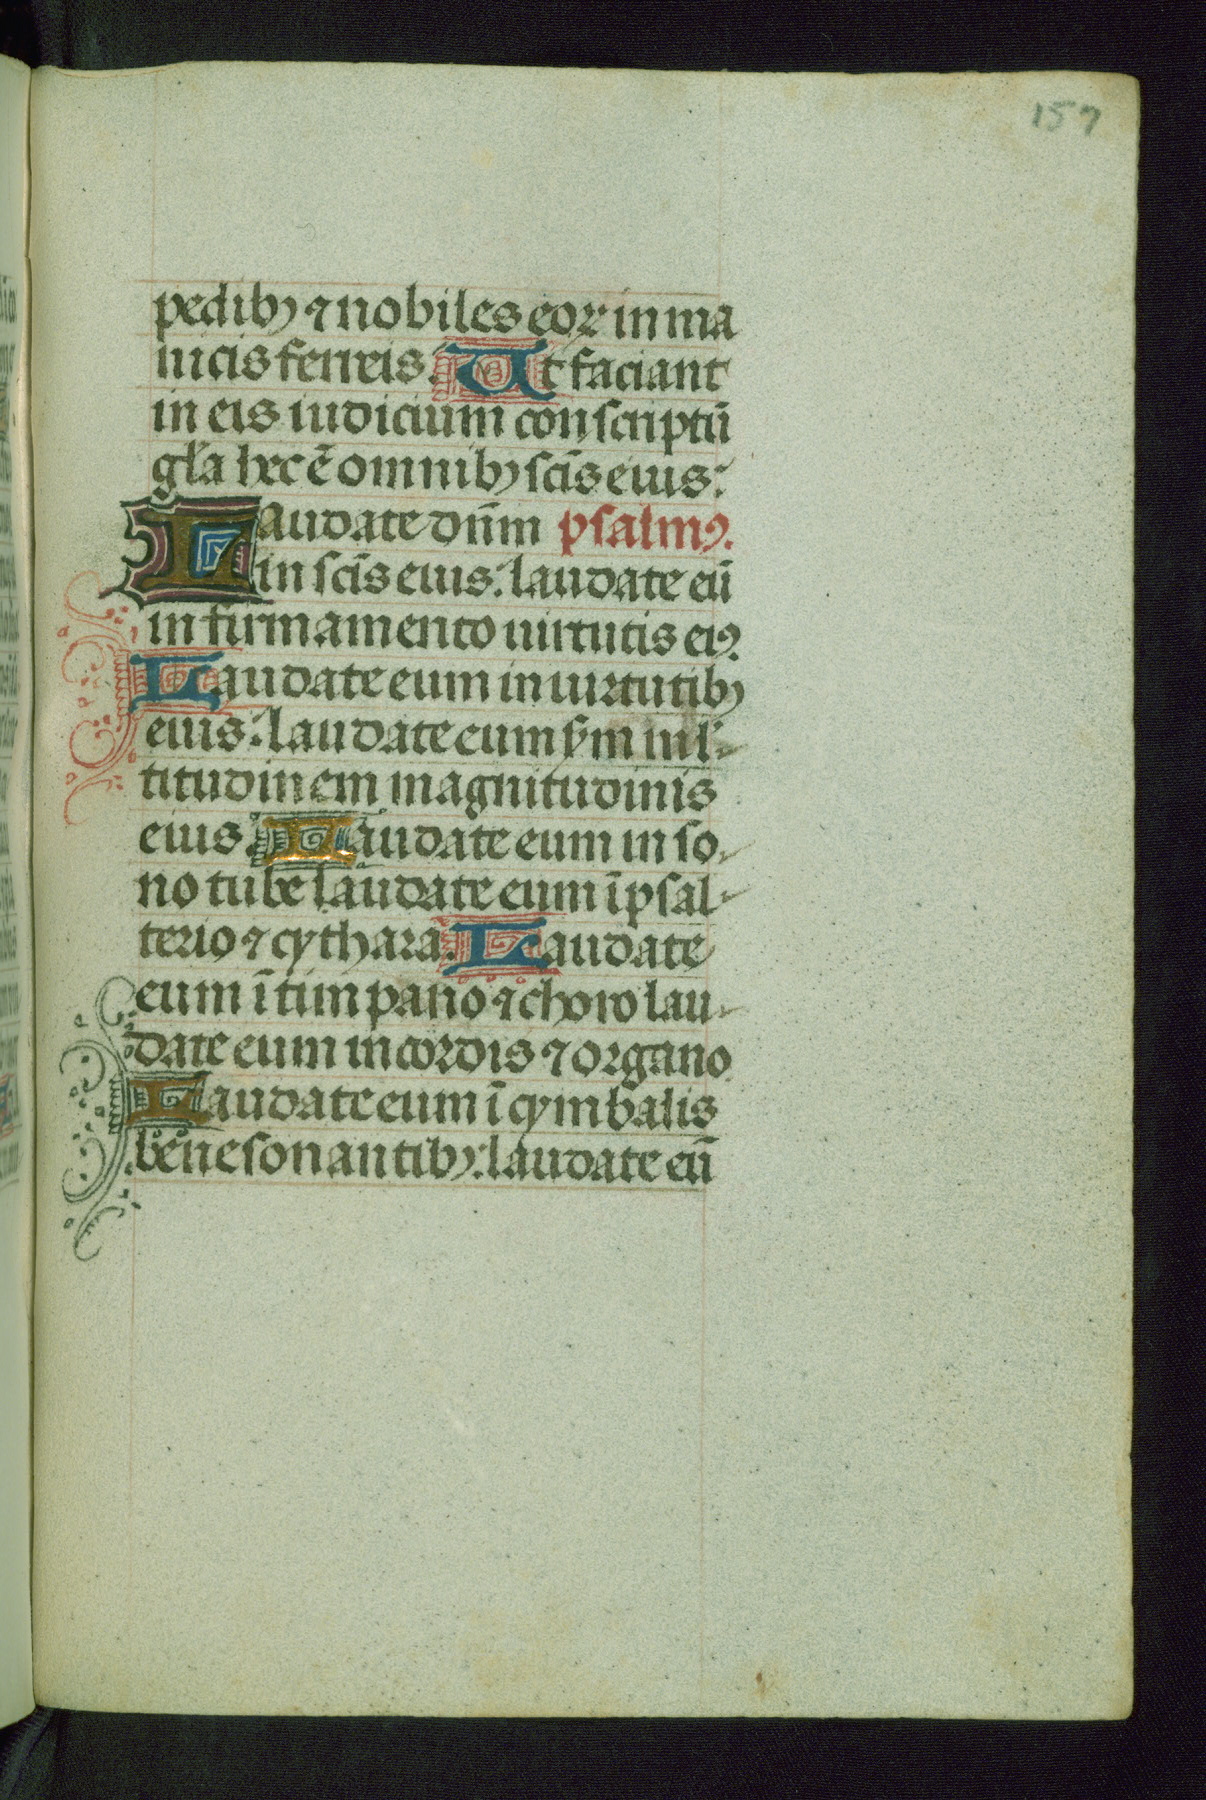 157
pedibꝫ ⁊ nobiles eoꝝ in ma
nicis ferreis. Ut faciant
in eis iudicium conscriptū
gl̄a hec ē omnibꝫ sc̄is eius.
Laudate dn̄m psalmꝰ.
in sc̄is eius. laudate eū
in firmamento uirtutis eiꝰ.
Laudate eum in uirtutibꝫ
eius. laudate eum sʒm mul-
titudinem magnitudinis
eius. Laudate eum in so-
no tube laudate eum ī psal-
terio ⁊ cythara. Laudate
eum ī timpano ⁊ choro lau-
date eum in cordis ⁊ organo
Laudate eum ī cymbalis
benesonantibꝫ. laudate eū